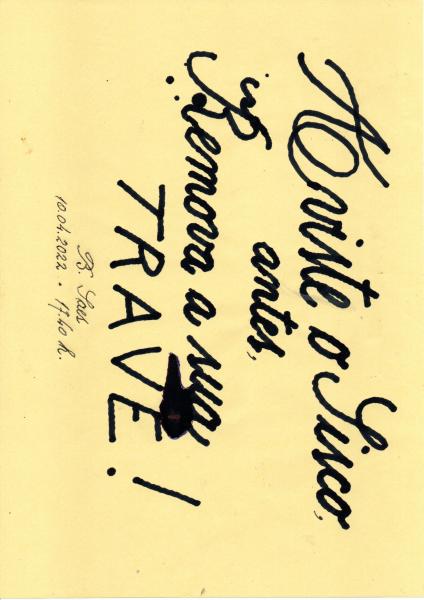 AO viste o Sisco,
antes,
Remova a sua
TRAVE!
B. Saes
10.04.2022 • 17.40 h.